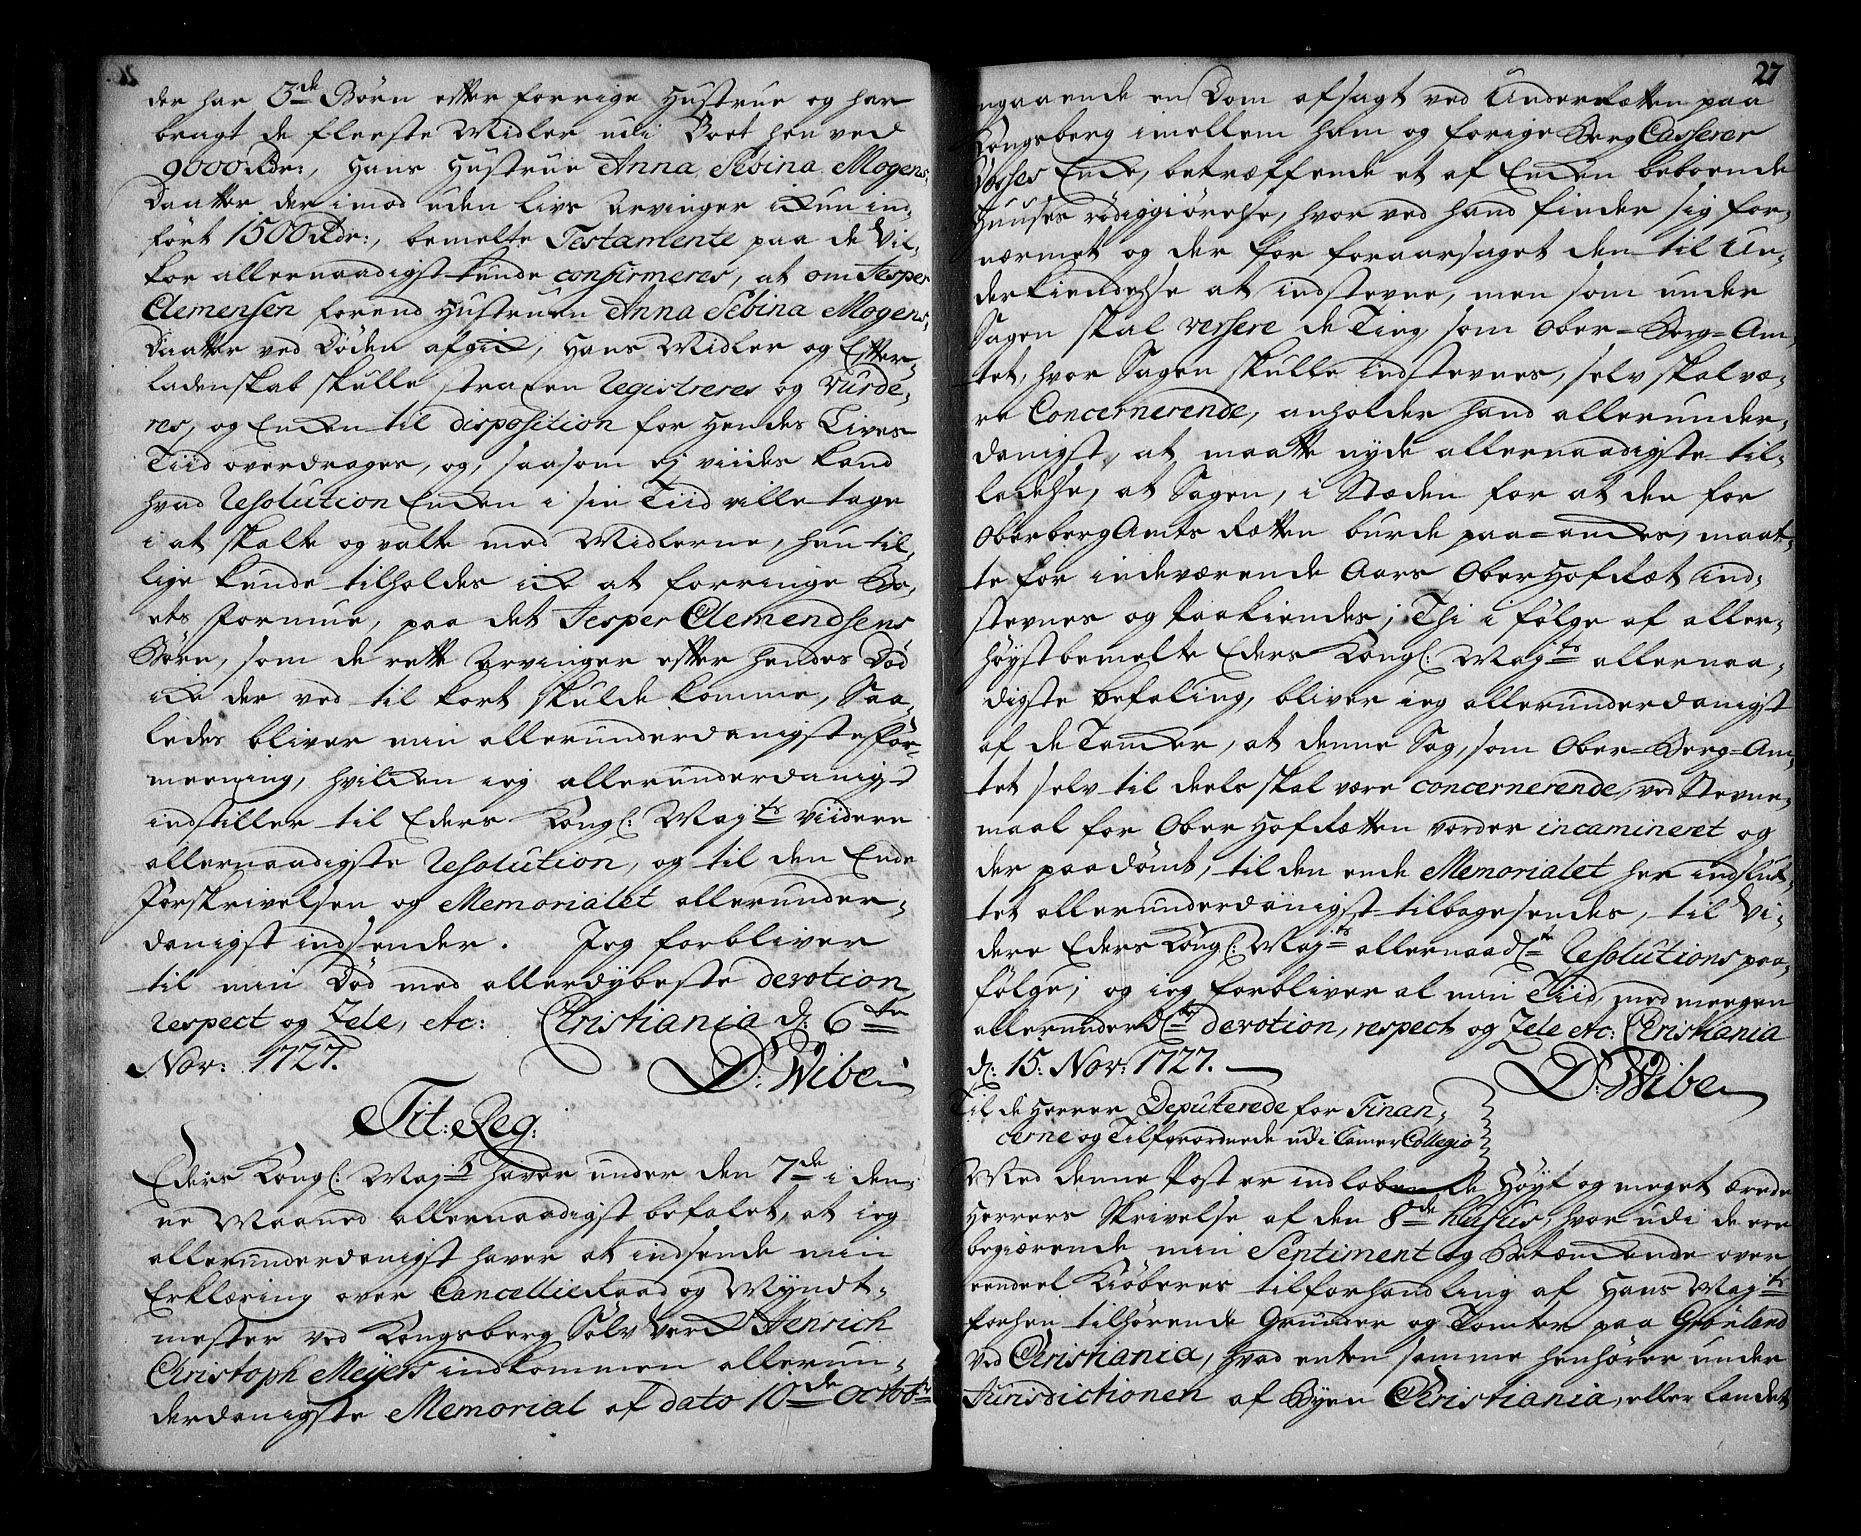 der har 3de Börn efter forrige Hustrue og har
bragt de fleeste Midler udi Boet hen ved
9000 Rdr:, Hans Hustrue Anna Sebina Mogens,
Daatter der imod uden Livs Arvinger ickun ind,
fört 1500 Rdr:, bemelte Testamente paa de Vil,
kor allernaadigst kunde confirmeres, at om Jesper
Clemensen forend Hustruen Anna Sebina Mogens,
Daatter ved Döden afgick, Hans Midler og Efter,
ladenskab skulle straxen Registreres og Vurde,
res, og Encken til disposition for Hendes Livs
Tiid overdrages, og, saasom ej viides kand
hvad Resolution Encken i sin Tiid ville tage
i at skalte og valte med Midlerne, hun til,
lige kunde tilholdes ick at forringe Bo,
ets Formue, paa det Jesper Clemendsens
Börn, som de rette Arvinger efter hendes Död
icke der ved til kort skulde komme, Saa,
ledes bliver min allerunderdanigste for,
meening, hvilcken ieg allerunderdanigst
indstiller til Eders Kongl: Majts viidere
allernaadigste Resolution, og til den Ende
Forskrivelsen og Memorialet allerunder,
danigst indsender. Jeg forbliver
til min Död med allerdybeste devotion,
respect og Zele, etc: Christiania d: 6te
Nov: 1727.
D: Wibe
Tit: Reg:
Eders Kongl: Majts haver under den 7de i den,
ne Maaned allernaadigst befalet, at ieg
allerunderdanigst haver at indsende min
Erklæring over Cancellie Raad og Myndt,
mester ved Kongsberg Sölv Verck Henrich
Christoph Meyers indkommen allerun,
derdanigste Memorial af dato 10de Octobr
27
angaaende en Dom afsagt ved Underrætten paa
Kongsberg imellem ham og forige Berg Casserer
Encke, betræffende et af Encken beboende
Huuses rödiggiörelse, hvor ved hand finder sig for,
nærmet og der for foraarsaget den til Un,
derkiendelse at indstevne, men som under
Sagen skal versere de Ting, som Ober-Berg-Am,
tet, hvor Sagen skulle indstevnes, selv skal væ,
re Concernerende, anholder hand allerunder,
danigst, at maatte nyde allernaadigste til,
ladelse, at Sagen, i Stæden for at den for
Oberberg Amts Rætten burde paa-anckes, maat,
te for indeværende Aars Ober Hof Ræt ind,
stevnes og Paakiendes; Thi i fölge af aller,
höystbemelte Eders Kongl: Majts allernaa,
digste befaling, bliver ieg allerunderdanigst
af de Tancker, at denne Sag, som Ober-Berg-Am,
tet selv til deels skal være concernerende, ved Stevne,
maal for Ober Hof Rætten vorder incamineret og
der paadömt, til den ende Memorialet her indslut,
tet allerunderdanigst tilbagesendes, til Vi,
dere Eders Kongl: Majts allernaadlte Resolutions paa,
fölge, og ieg forbliver al min Tiid med meegen
allerunderdlte devotion, respect og Zele etc: Christiania
d: 15: Nov: 1727.
D: Wibe
Til de Herrer Deputerede for Finan,
cerne og Tilforordnede udi Camer Collegio
Med denne Post er indloben de Höyt og meget ærede
Herrers Skrivelse af den 8de hujus, hvor udi de ere
begiærende min Sentiment og Betænckende over
eendeel Kiöberes tilforhandling af Hans Majts
forhen tilhörende Grunder og Tomter paa Grönland
ved Christiania, hvad enten samme henhörer under
Jurisdictionen af Byen Christiania, eller landet